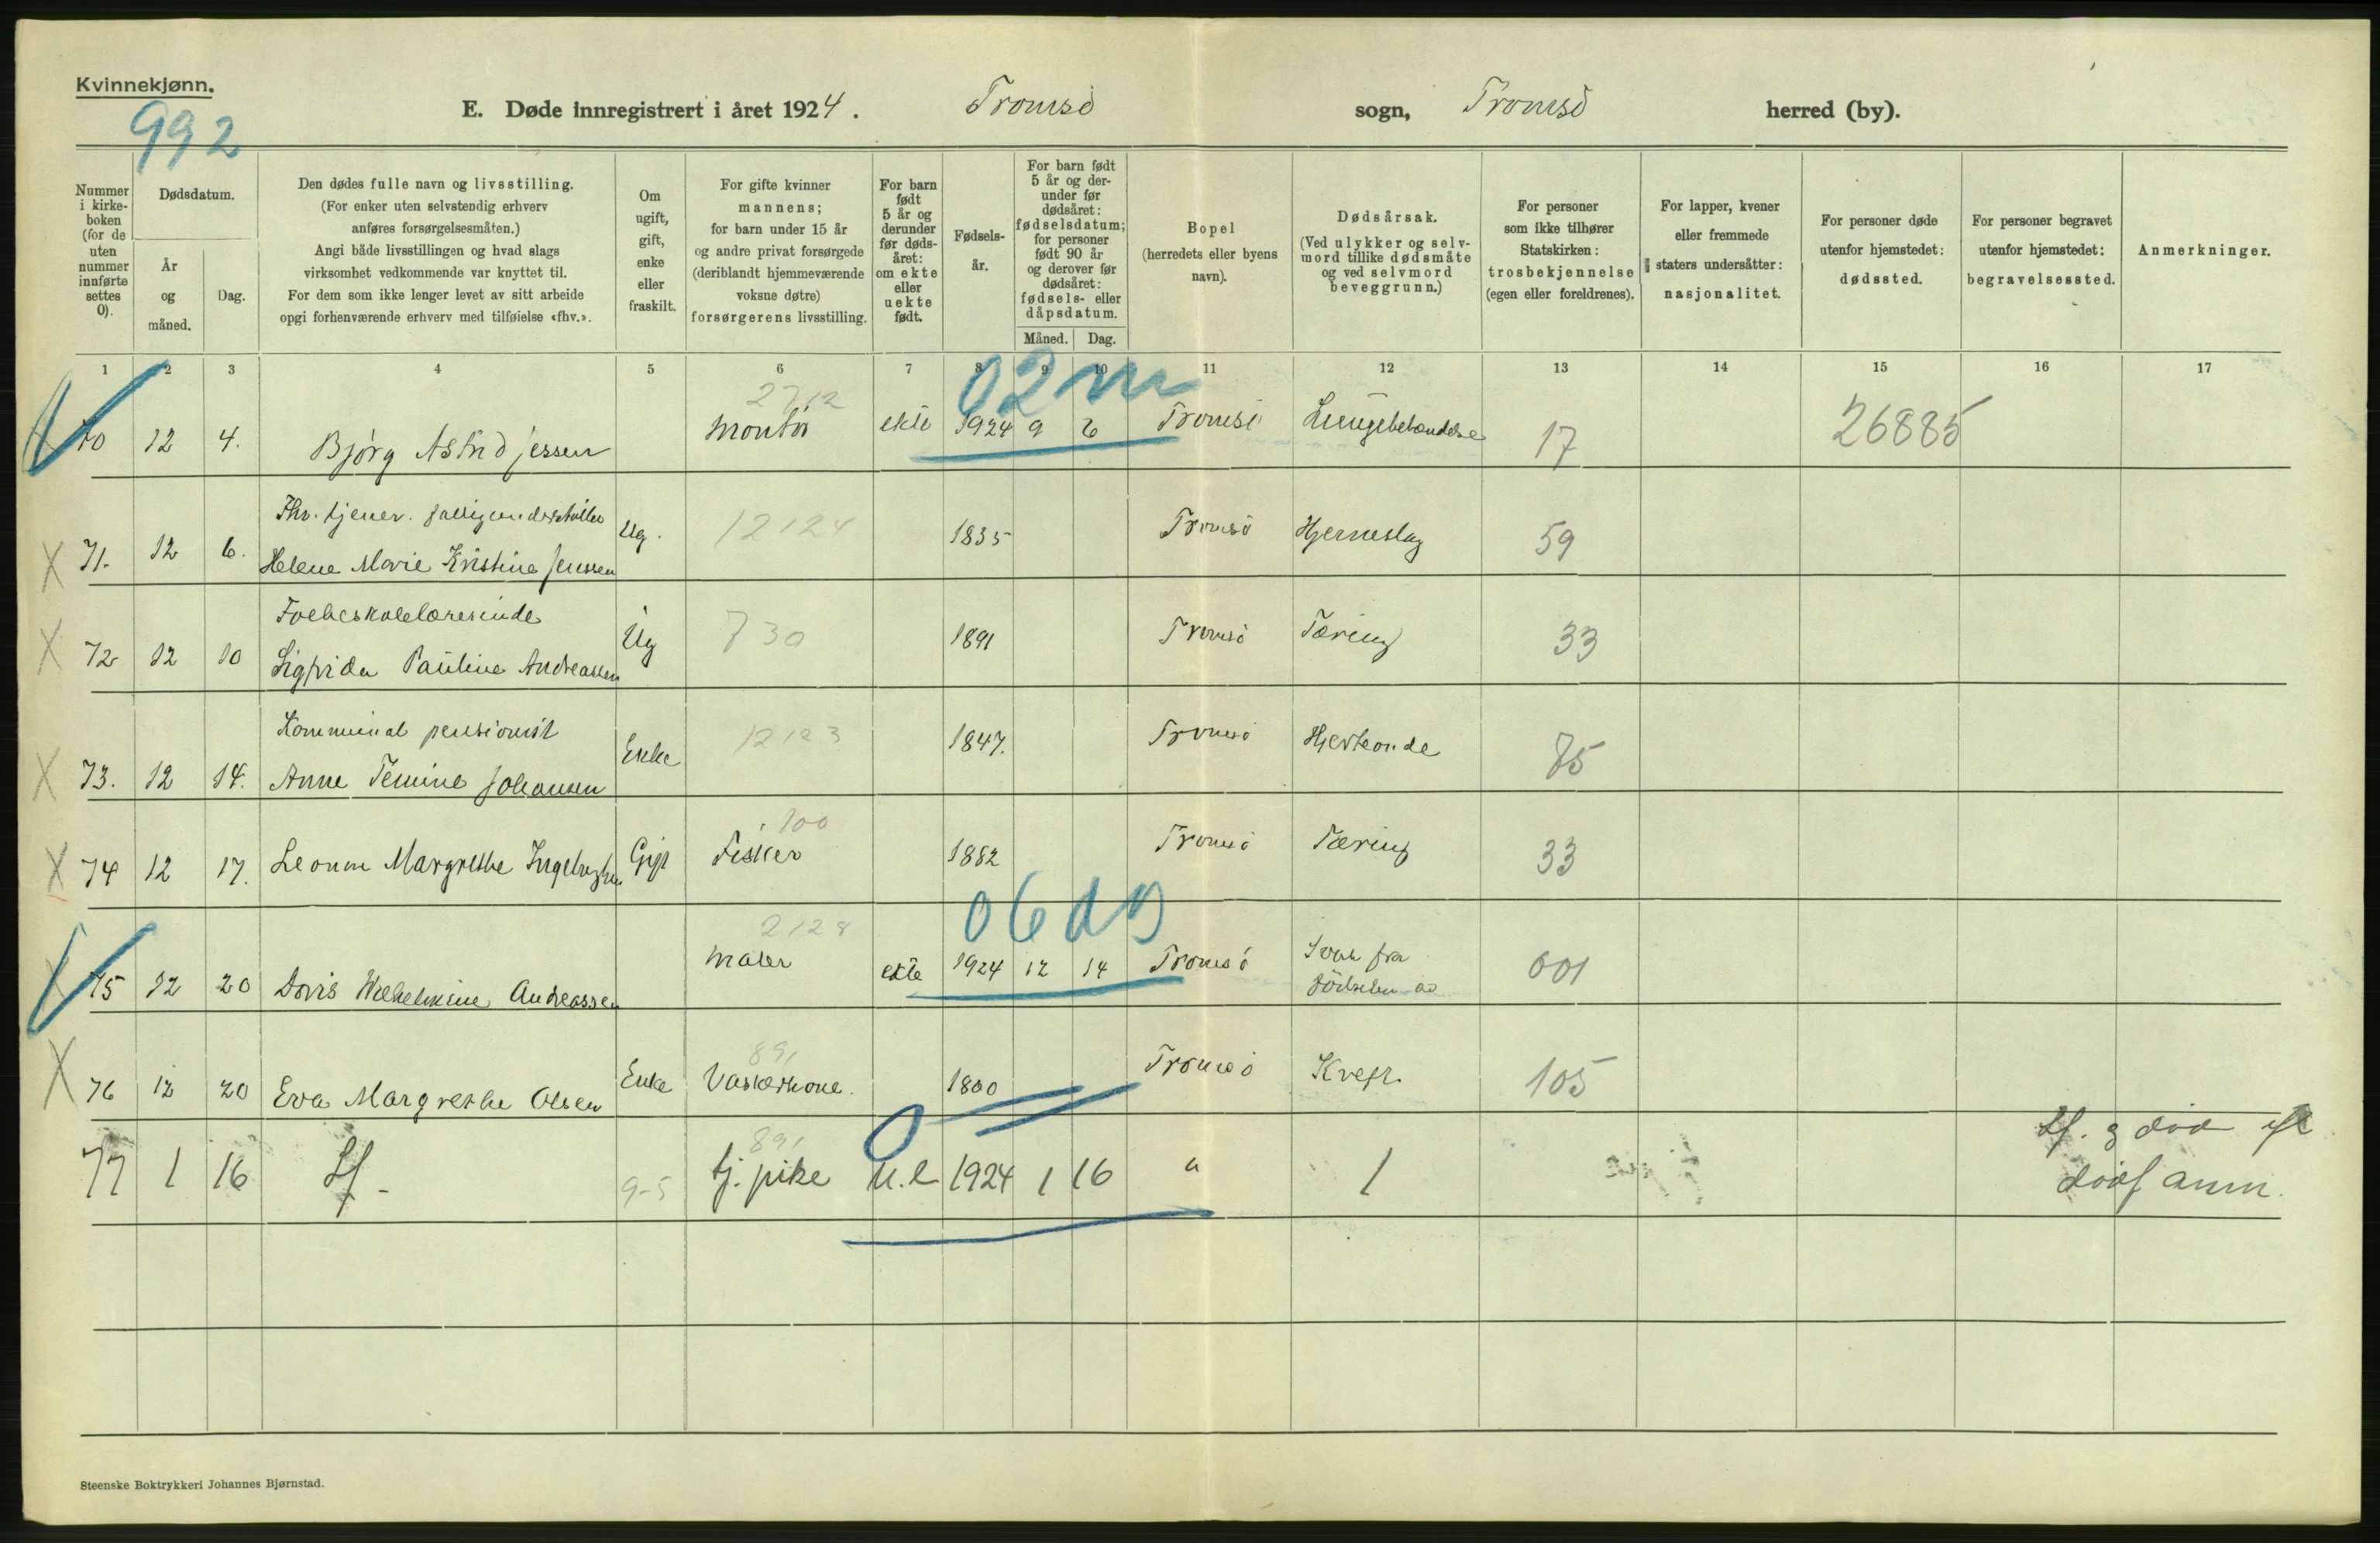 Kvinnekjønn.
992
E. Døde innregistrert i året 1924. Tromsö sogn, Tromsö herred (by).
Nummer i kirkeboken (for de uten nummer innførte settes 0).
Dødsdatum.
År og måned.
Dag.
Den dødes fulle navn og livsstilling.
(For enker uten selvstendig erhverv
anføres forsørgelsesmåten.)
Angi både livsstillingen og hvad slags
virksomhet vedkommende var knyttet til.
For dem som ikke lenger levet av sitt arbeide
opgi forhenværende erhverv med tilføielse «fhv.».
Om ugift, gift, enke eller fraskilt.
For gifte kvinner
mannens;
for barn under 15 år
og andre privat forsørgede
(deriblandt hjemmeværende
voksne døtre)
forsørgerens livsstilling.
For barn født 5 år og derunder før dødsåret: om ekte eller uekte født.
Fødselsår.
For barn født 5 år og derunder før dødsåret: fødselsdatum; for personer født 90 år og derover før dødsåret: fødsels- eller dåpsdatum.
Måned. Dag.
Bopel
(herredets eller byens
navn).
Dødsårsak.
(Ved ulykker og selvmord tillike dødsmåte og ved selvmord beveggrunn.)
For personer
som ikke tilhører
Statskirken:
trosbekjennelse
(egen eller foreldrenes).
For lapper, kvener
eller fremmede
staters undersåtter:
nasjonalitet.
For personer døde
utenfor hjemstedet:
dødssted.
For personer begravet
utenfor hjemstedet:
begravelsessted.
Anmerkninger.
1 2 3 4 5 6 7 8 9 10 11 12 13 14 15 16 17
2712 02 m
70 12 4. Bjørg Astrid Jessen Montør ekte 1924 9 6 Tromsö Lungebetændelse 17 26885
Fhv. tjener. fattigunderstøttet
71. 12 6. Helene Marie Kristine Jenssen Ug. 12124 1835 Tromsö Hjerneslag 59
Folkeskolelærerinde
72 12 10 Sigfrida Pauline Andreassen Ug 730 1891 Tromsö Tæring 33
Kommunal pensionist
73. 12 14. Anne Temine Johansen Enke 12123 1847. Tromsö Hjerteonde 75
100
74 12 17. Leonore Margrethe Gift Fisker 1882 Tromsö Tæring 33
2128 06 dg
75 12 20 Doris Wilhelmine Andreassen Maler ekte 1924 12 14 Tromsö Svak fra
fødselen av 001
891
76 12 20 Eva Margrethe Olsen Enke Vaskerkone. 1860 Tromsö Kreft. 105
891 0
77 1 16 Lf. 9-5 tj. pike u.e 1924 1 16 " 1
Lf. g død
dødf anm.
Steenske Boktrykkeri Johannes Bjørnstad.